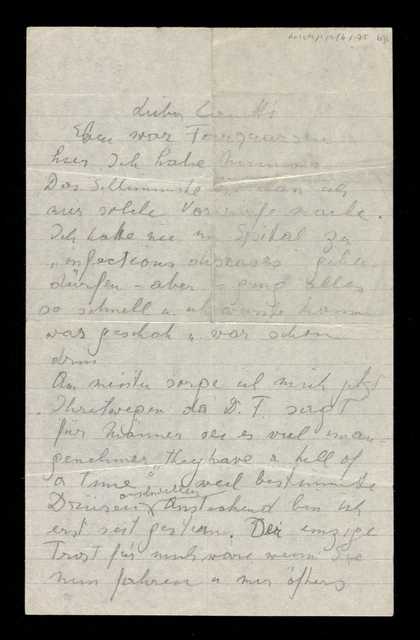 Lieber
Eben war
hier. Ich habe Mumps
Das Schlimmste ist dass ich
mir solche Vorwürfe mache.
Ich hätte nie ins Spital zu
"infectious diseases" gehen
dürfen – aber es ging alles
so schnell u. ich wusste kaum
was geschah u. war schon
drin
Am meisten sorge ich mich jetzt
Ihretwegen da D. F. sagt
für Männer sei es viel unan-
genehmer "they have a hell of
a time", weil bestimmte
Drüsen anschwellen. Ansteckend bin ich
erst seit gestern. Der einzige
Trost für mich wäre wenn Sie
nun fahren u mir öfters